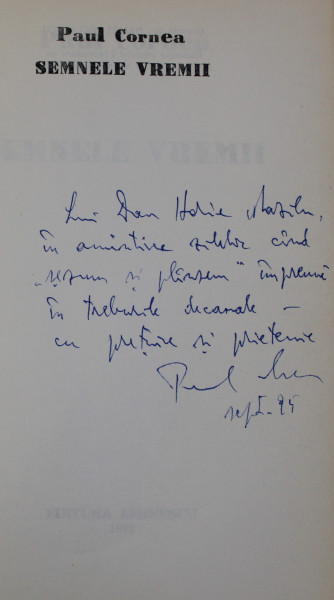 Paul Cornea
SEMNELE VREMII
Lui Dan Horia Mazilu,
în amintirea zilelor când
„râdeam și plângeam” împreună
în treburile decanale —
cu prețuire și prietenie
Paul Cornea
sept. 95